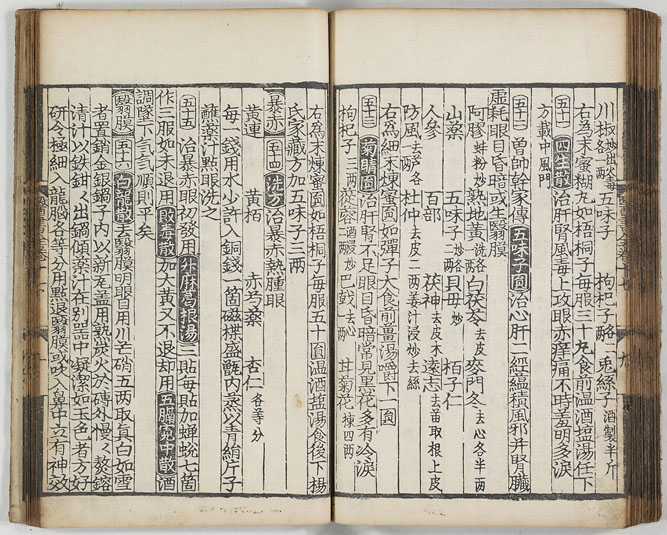 川椒炒出火毒各 五味子 枸杞子各一兩 兎絲子酒製半斤
右為末蜜糊丸如梧桐子每服三十丸食前温酒塩湯任下
五十一 四生散 治肝腎風毒上攻眼赤痒痛不時羞明多淚
方載中風門
五十二 曽帥幹家傳 五味子圓 治心肝二經藴積風邪并腎臓
虚耗眼目昏暗或生翳膜
阿膠蚌粉炒 熟地黄洗各一兩 白茯苓去皮 麥門冬去心各半兩
山藥 五味子炒各二兩 貝母炒 栢子仁
人參 百部 茯神去皮木 遠志去苗取根上皮
防風去芦各一兩 杜仲去皮二兩姜汁浸炒去絲
右為細末煉蜜圓如彈子大食前薑湯嚼下一圓
五十三 菊睛圓 治肝腎不足眼目昏暗常見黒花多有冷淚
枸杞子三兩 蓯蓉二兩酒浸炒 巴戟一兩去心 甘菊花揀四兩
右為末煉蜜圓如梧桐子每服五十圓温酒塩湯食後下楊
氏家藏方加五味子三兩
暴赤 五十四 洗方 治暴赤熱腫眼
黄連 黄栢 赤芍藥 杏仁各等分
每一錢用水少許入銅錢一箇磁楪盛甑内蒸以青絹片子
蘸藥汁點眼洗之
五十五 治暴赤眼初發用 升麻葛根湯 三貼每貼加蟬蛻七箇
作三服如未退用 敗毒散 加大黄又不退却用 五膈寛中散 酒
調墜下気気順則平矣
翳膜 五十六 白龍散 去翳膜明眼目用川芒硝五兩取真白如雪
者置銷金銀鍋子内以新瓦盖用熟炭火於磚外慢く熬鎔
清汁以鉄鉗く出鍋傾藥汁在別器中凝潔如玉色者方好
研令極細入龍腦各等分用點退翳膜或吹入鼻中立有神效